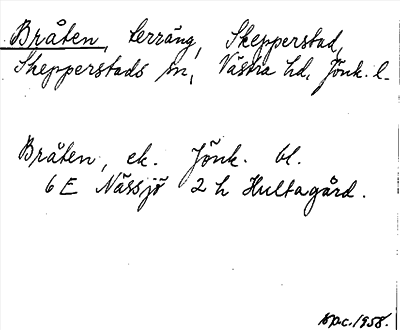 Bråten, terräng, Skepperstad,
Skepperstads sn, Västra hd, Jönk. l.
Bråten, ek. Jönk. bl.
6 E Nässjö 2 h Hultagård.
1958.